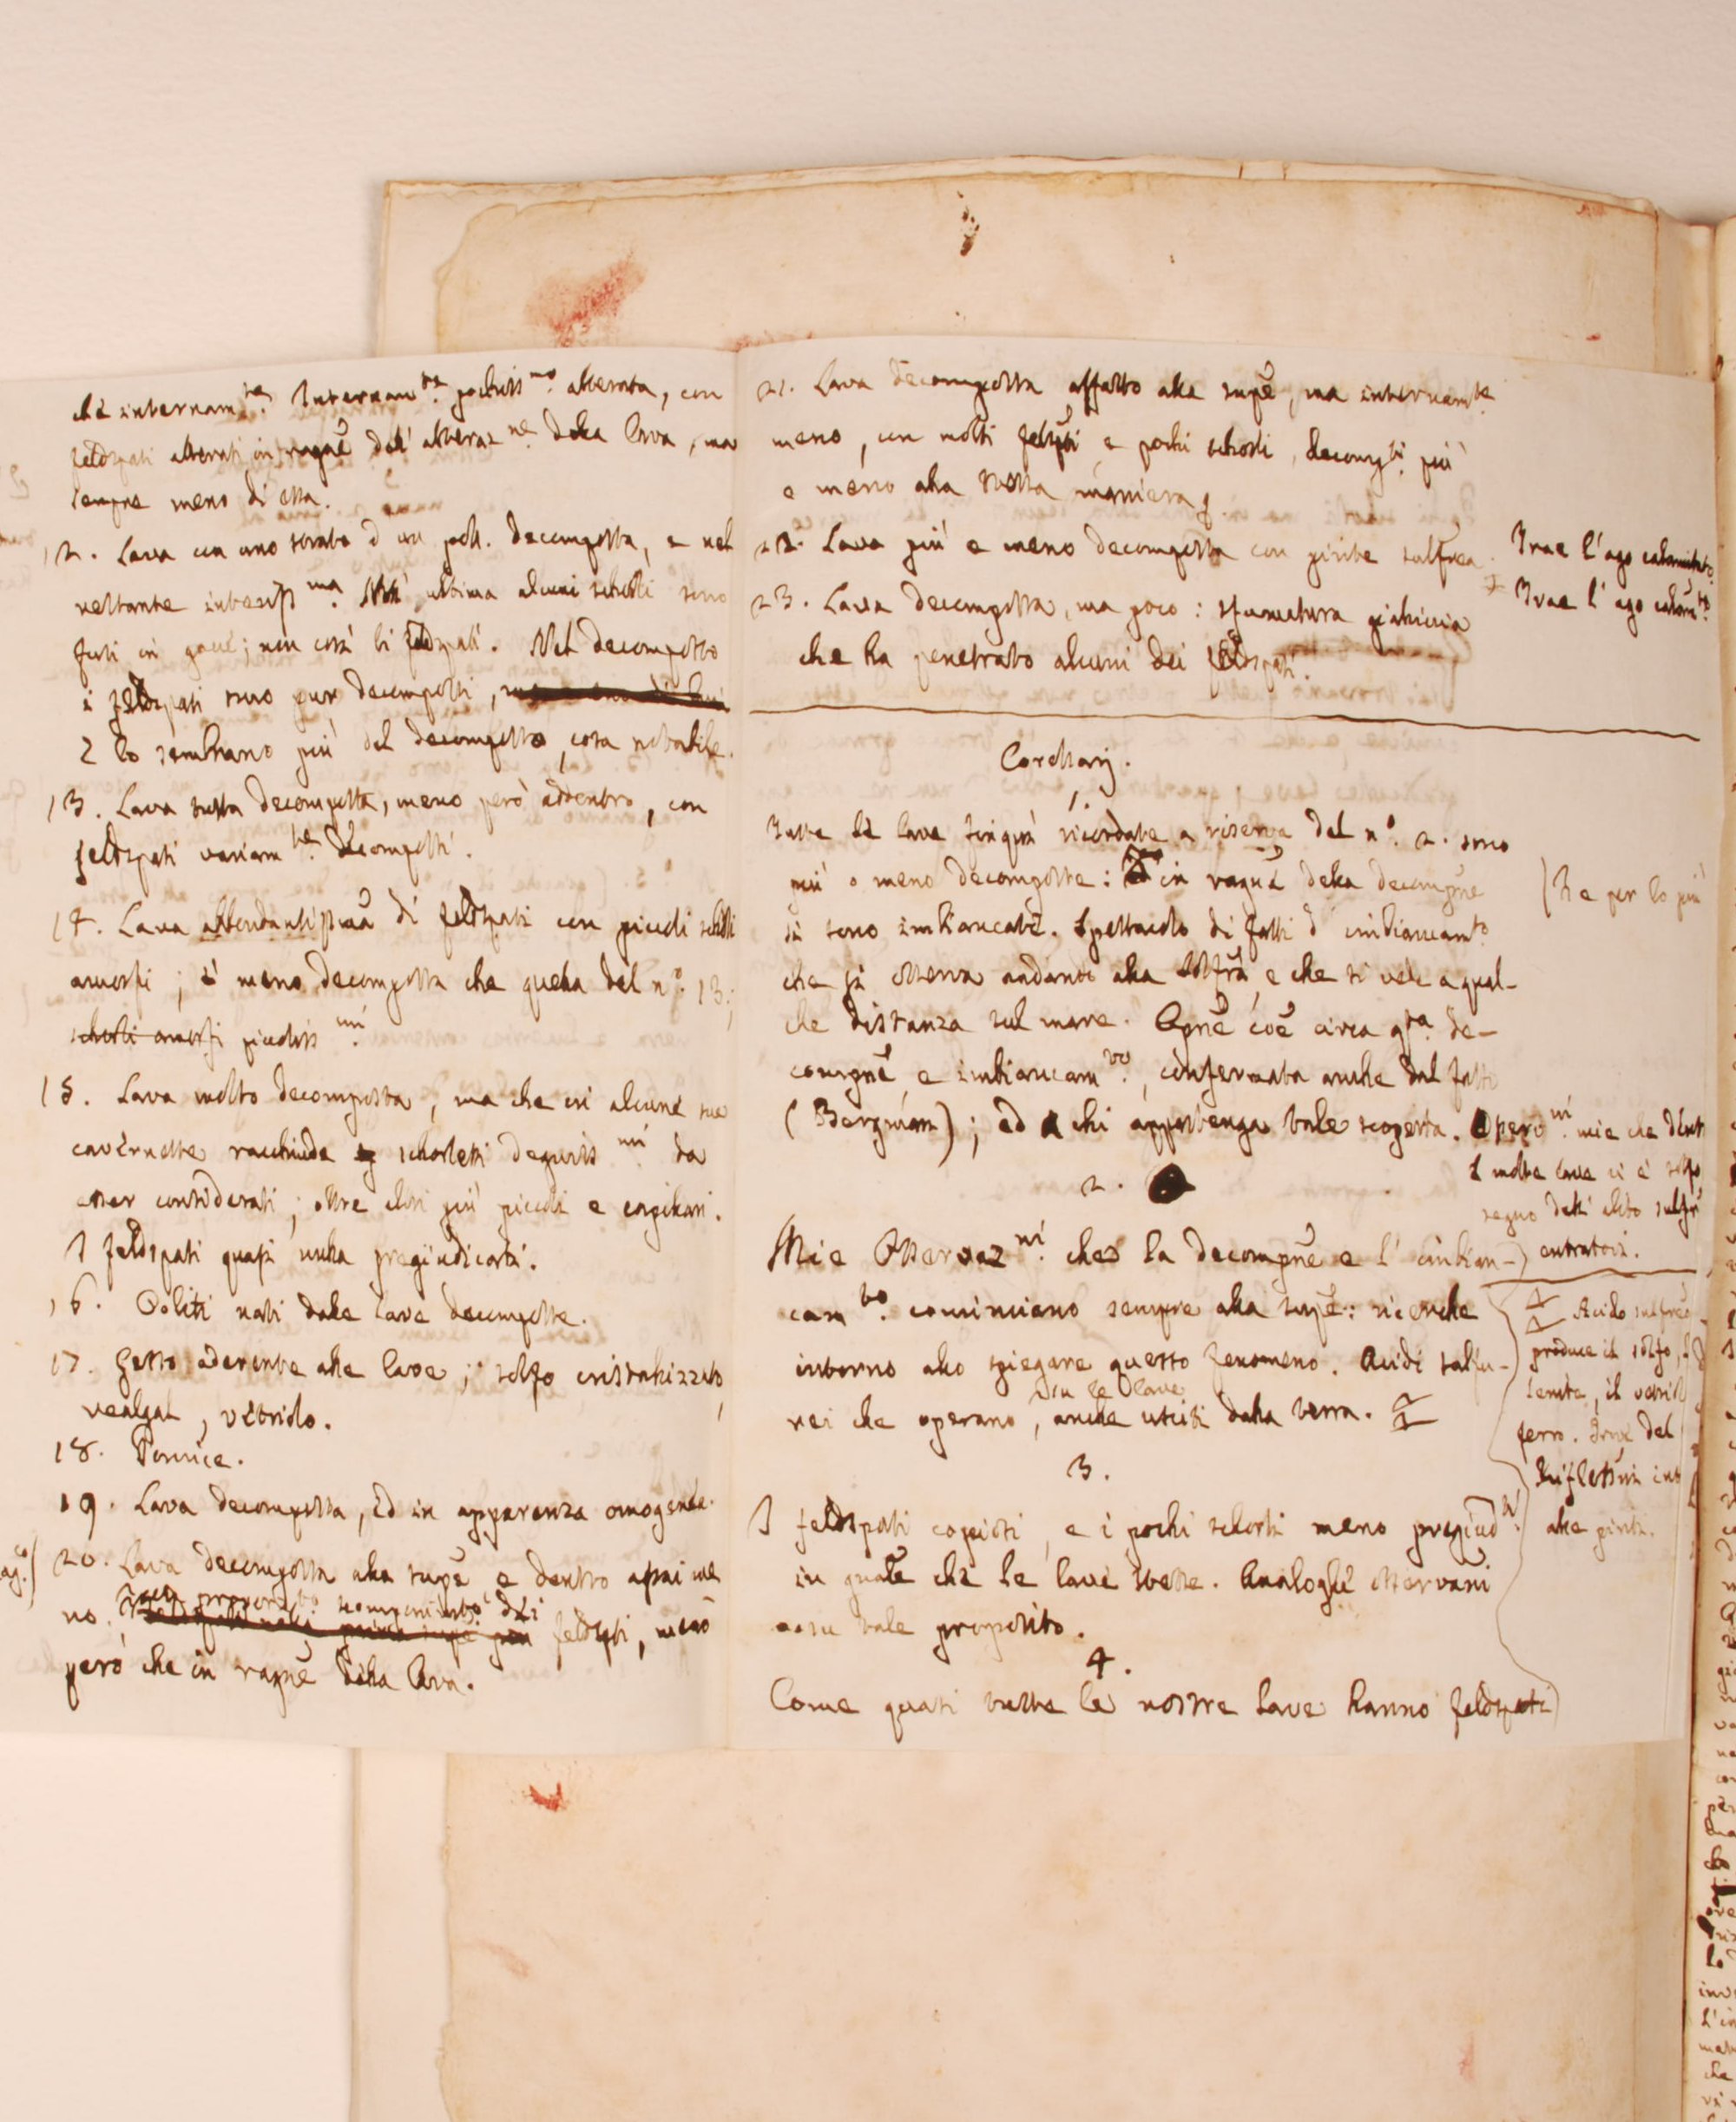 che internam.te Internam.te pochiss.mo alterata, con
feldspati alterati in ragne dell'alteraz.ne della lava, ma
sempre meno di essa.
12. Lava con uno strato d'un poll. decomposta, e nel
restante interiss.ma Nell'ultima alcuni schorli sono
fusi in; non così li feldspati. Nel decomposto
i feldspati sono pur decomposti,
e lo sembrano più del decomposto, cosa notabile.
13. Lava tutta decomposta, meno però addentro, con
feldspati variam.te decomposti.
14. Lava abbondantissima di feldspati con piccoli schorli
amorfi; è meno decomposta che quella del n.° 13;
schorli amorfi piccoliss.mi
15. Lava molto decomposta, ma che in alcune sue
cavernette racchiude schorletti deguiss.mi da
esser considerati; oltre altri più piccoli e capillari.
I feldspati quasi nulla pregiudicati.
16. Ooliti nati dalle lave decomposte.
17. Gesso aderente alle lave; solfo cristallizzato,
realgal, vitriolo.
18. Pomice.
19. Lava decomposta, ed in apparenza omogenea.
20. Lava decomposta alla supe, e dentro assai me
no. scomponimto dei
feldspti, meno
però che in ragne della lava.
21. Lava decomposta affatto alla supe, ma internam.te
meno, con molti feldspti e pochi schorli, decomp.ti più
e meno alla stessa maniera.
22. Lava più e meno decomposta con pirite sulfurea.
Trae l'ago calamitato.
23. Lava decomposta, ma poco: sfumatura gialliccia
Trae l'ago calam.to
che ha penetrato alcuni dei feldspati.
Corollarj.
1.
Tutte le lave finquì ricordate a riserva del n.° 2. sono
più o meno decomposte: in ragne della decompne
(Ke per lo più
si sono imbiancate. Spettacolo di fatti d'imbiancam.to
che si osserva andando alla Solfra, e che si vede a qual-
che distanza sul mare. Opne cioè circa q.ta de-
compne e imbiancam.to, confermata anche dal fatto
(Bergman); ed a chi appartenga tale scoperta.
Osservni mie che dent
e molte lave ci è solfo
segno delli aliti sulfri
entrativi.
2.
Mie Osservaz.ni che la decompne e l'imbian-
cam.to cominciano sempre alla supe: ricerche
intorno allo spiegare questo fenomeno. Acidi sulfu-
su le lave
rei che operano, anche usciti dalla terra.
Acido sulfreo
produce il solfo,
lenite, il vetriol
ferro. Trae del
Riflessni int
alle piriti.
3.
I feldspati copiosi, e i pochi schorli meno pregiud.ti
in gnale che le lave stesse. Analoghe osservani
su tale proposito.
4.
Come quasi tutte le nostre lave hanno feldspati